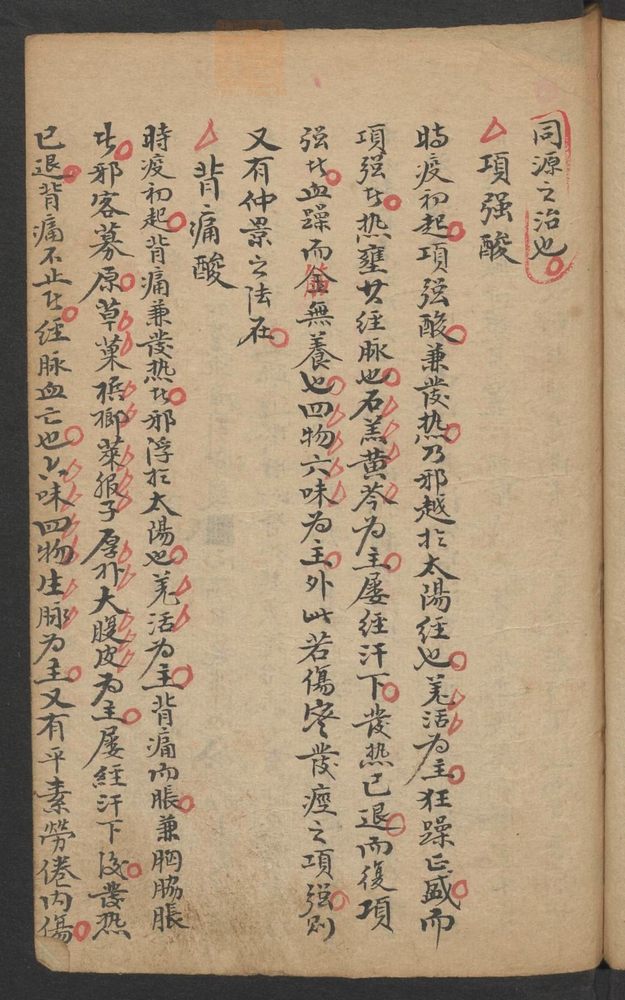 同源之治也
項強酸
時疫初起項強酸兼發热乃邪越於太陽經也羌活為主狂躁正盛而
項强者热壅其經脉也石羔黄芩為主屡經汗下發热已退而復項
强者血躁而筋無養也四物六味為主外此若傷寒發痙之項强則
又有仲景之法在
背痛酸
時疫初起背痛兼發热者邪浮於太陽也羌活為主背痛而脹兼胸脇脹
者邪客募原草菓梹榔萊服子厚朴大腹皮為主屡經汗下後發热
已退背痛不止者經脉血亡也六味四物生脉為主又有平素勞倦内傷